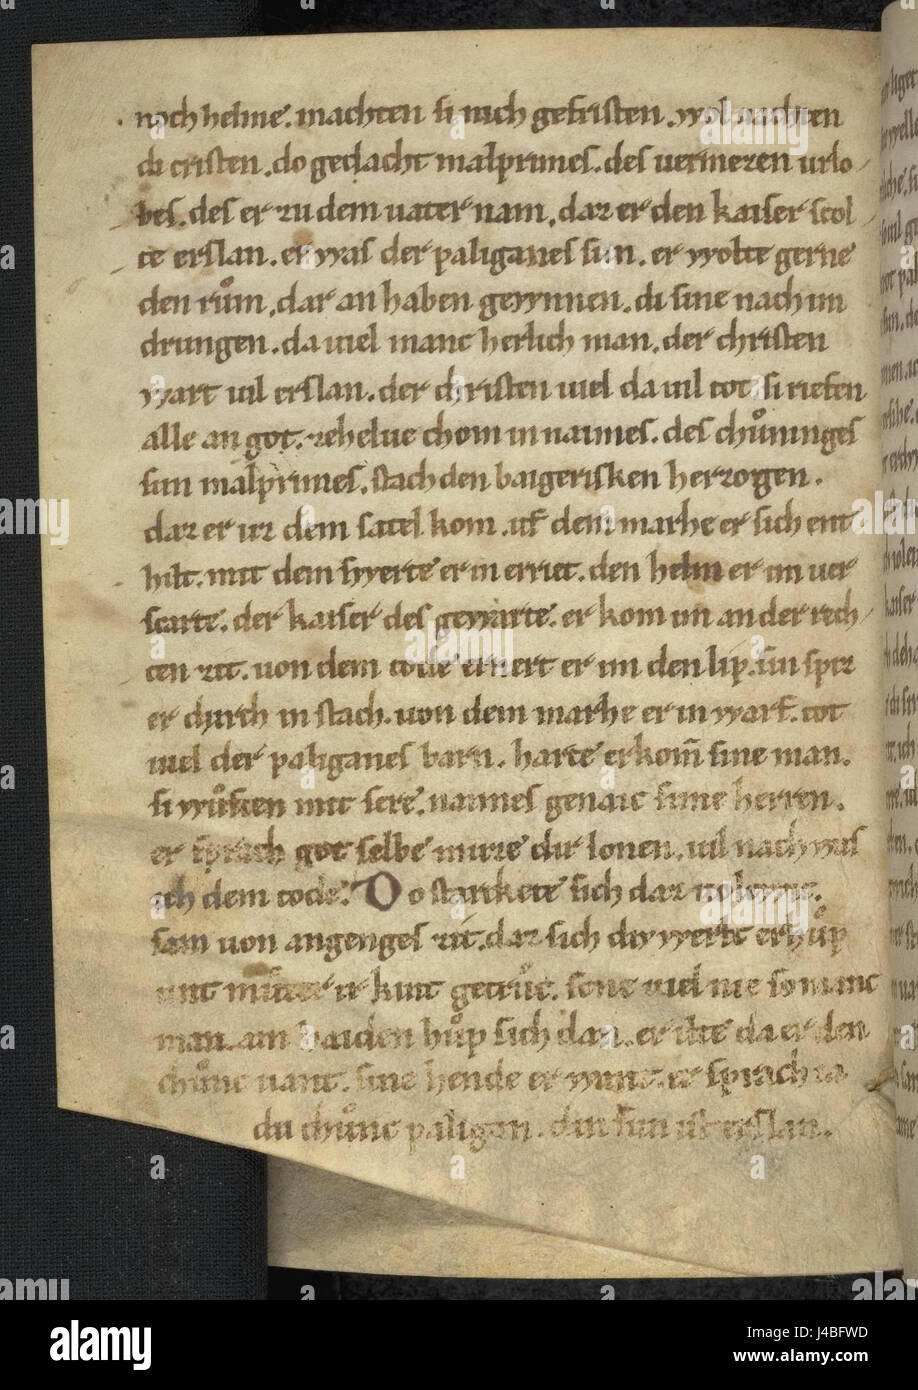 noch helme. machten si nich gefristen. wol uachten
di cristen. do gedacht malprimes. des uermezen urlo
bes. des er zu dem uater nam. daz er den kaiser scol
te erslan. er was der paliganes sun. er wolte gerne
den rům. dar an haben gewnnen. di sine nach im
drungen. da uiel manc herlich man. der christen
wart uil erslan. der christen uiel da uil tot. si riefen
alle an got. ze helue chom in naimes. des chůninges
sun malprimes. stach den baigerisken herzogen.
daz er uz dem satel kom. uf dem marhe er sich ent
hilt. mit dem swerte er in erriet. den helm er im uer
scarte. der kaiser des gewarte. er kom im an der rech
ten zit. von dem tode ernert er im den lip. sin sper
er durch in stach. uon dem marhe er in warf. tot
uiel der paliganes barn. harte erkom̄ sine man.
si wůfken mit sere. naimes genaic sime herren.
er sprach got selbe muze dir lonen. uil nach was
ich dem tode. Do starckete sich daz uolcwic.
sam uon angenges zit. daz sich diu werlt erhůp
unt můter ir kint getrůc. sone uiel nie so manc
man. ain haiden hůp sich dan. er ilte da er den
chůnc uant. sine hende er want. er sprach ia
du chůnc paligan. din sun ist erslan.
alamy
J4BFWD
www.alamy.com